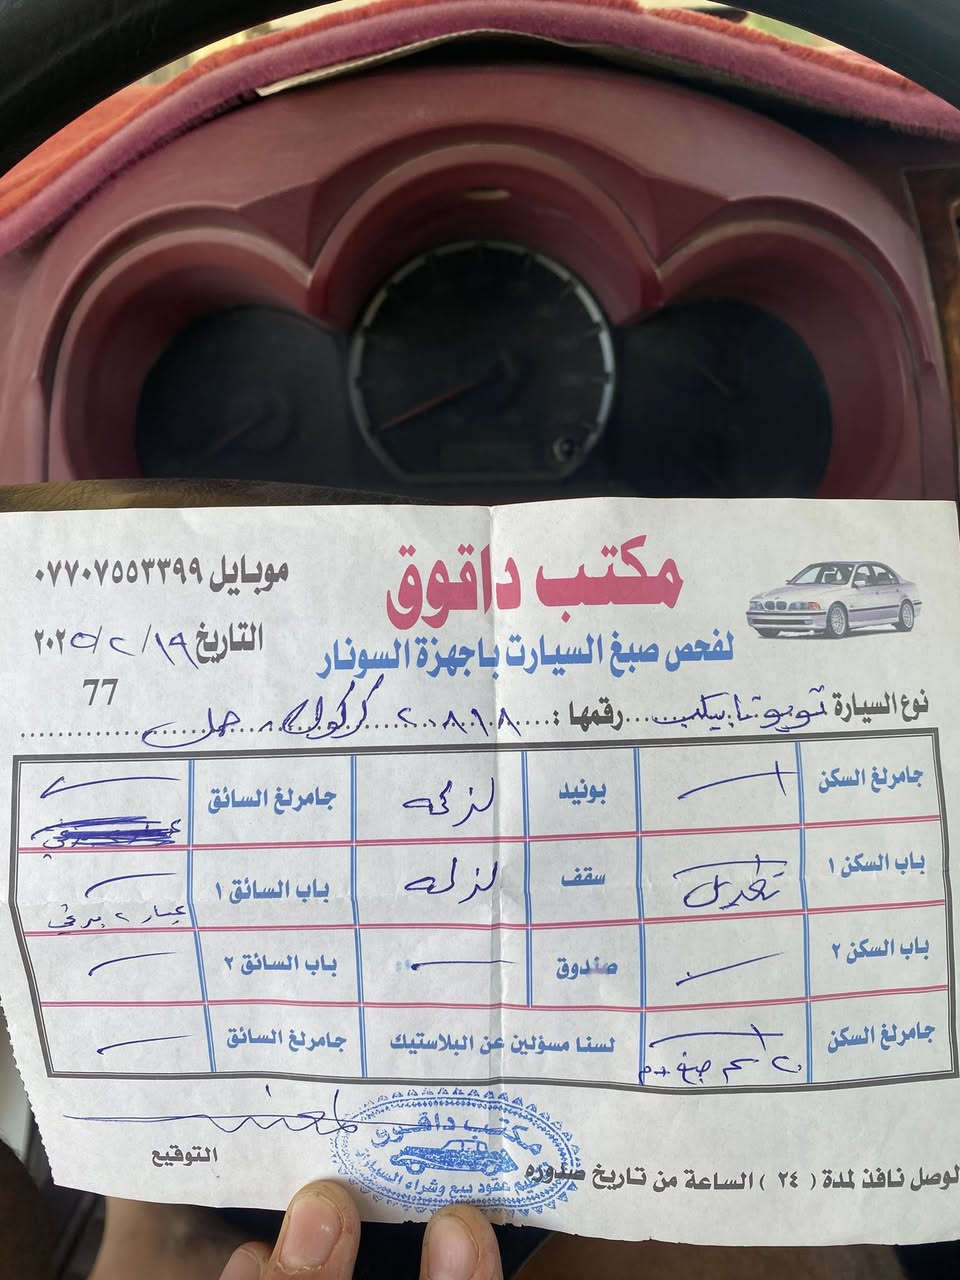 مكتب داقوق
موبايل ٠٧٧٠٧٥٥٣٣٩٩
لفحص صبغ السيارت باجهزة السونار
التاريخ ١٩/٢/٢٠٢٥
77
نوع السيارة تويوتا بيكب رقمها : ٢٠٨١٨ كركوك حمل
جامرلغ السكن بونيد جامرلغ السائق
باب السكن ١ تعديل سقف باب السائق ١
باب السكن ٢ صندوق باب السائق ٢
جامرلغ السكن صبغ لسنا مسؤلين عن البلاستيك جامرلغ السائق
التوقيع
مكتب داقوق
عقود بيع وشراء السيارات
لوصل نافذ لمدة ( ٢٤ ) الساعة من تاريخ صدوره